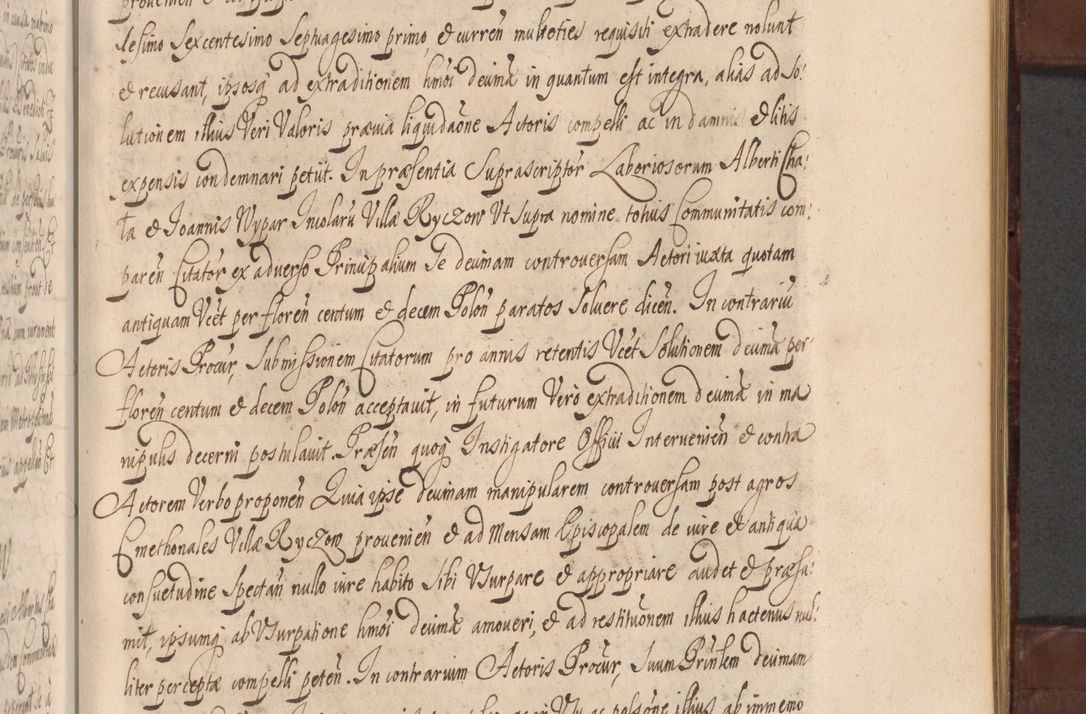 lesimo Sexcentesimo Septuagesimo primo, et curreñ multoties requisiti extradere nolunt
et recusant, ipsosq̃ ad extraditionem hm̃oi decimæ in quantum est integra, alias ad So:
lutionem illius Veri Valoris prævia liquidaõne Actoris compelli ac in damnis et litis
expensis condemnari petiit. In præsentia Suprascriptor̃ Laboriosorum Alberti Cha:
ta et Ioannis Wypar Incolarũ Villæ Ryczow Ut Supra nomine totius Communitatis com:
pareñ Citator̃ ex adverso Principalium Se decimam controversam Actori iuxta quotam
antiquam Vc̃et per floreñ centum et decem Poloñ paratos Solvere diceñ. In contrariũ
Actoris Procur̃, Submissionem Citatorum pro annis retentis Vc̃et Solutionem decimæ per
floreñ centum et decem Poloñ acceptavit, in futurum Vero extraditionem decimæ in ma
nipulis decerni postulavit. Præseñ quoq̃ Instigatore Officii Intervenieñ et contra
Actorem Verbo proponeñ Quia ipse decimam manipularem controversam post agros
Cmethonales Villæ Ryczow provenieñ et ad Mensam Episcopalem de iure et antiqua
consuetudine Spectañ nullo iure habito Sibi Usurpare et appropriare audet et præsu:
mit, ipsumq̃ ab Usurpatione hm̃oi decimæ amoveri, et ad restituõnem illius hactenus nul:
liter perceptæ compelli peteñ. In contrarium Actoris Procur̃, Suum Prin̄lem decimam